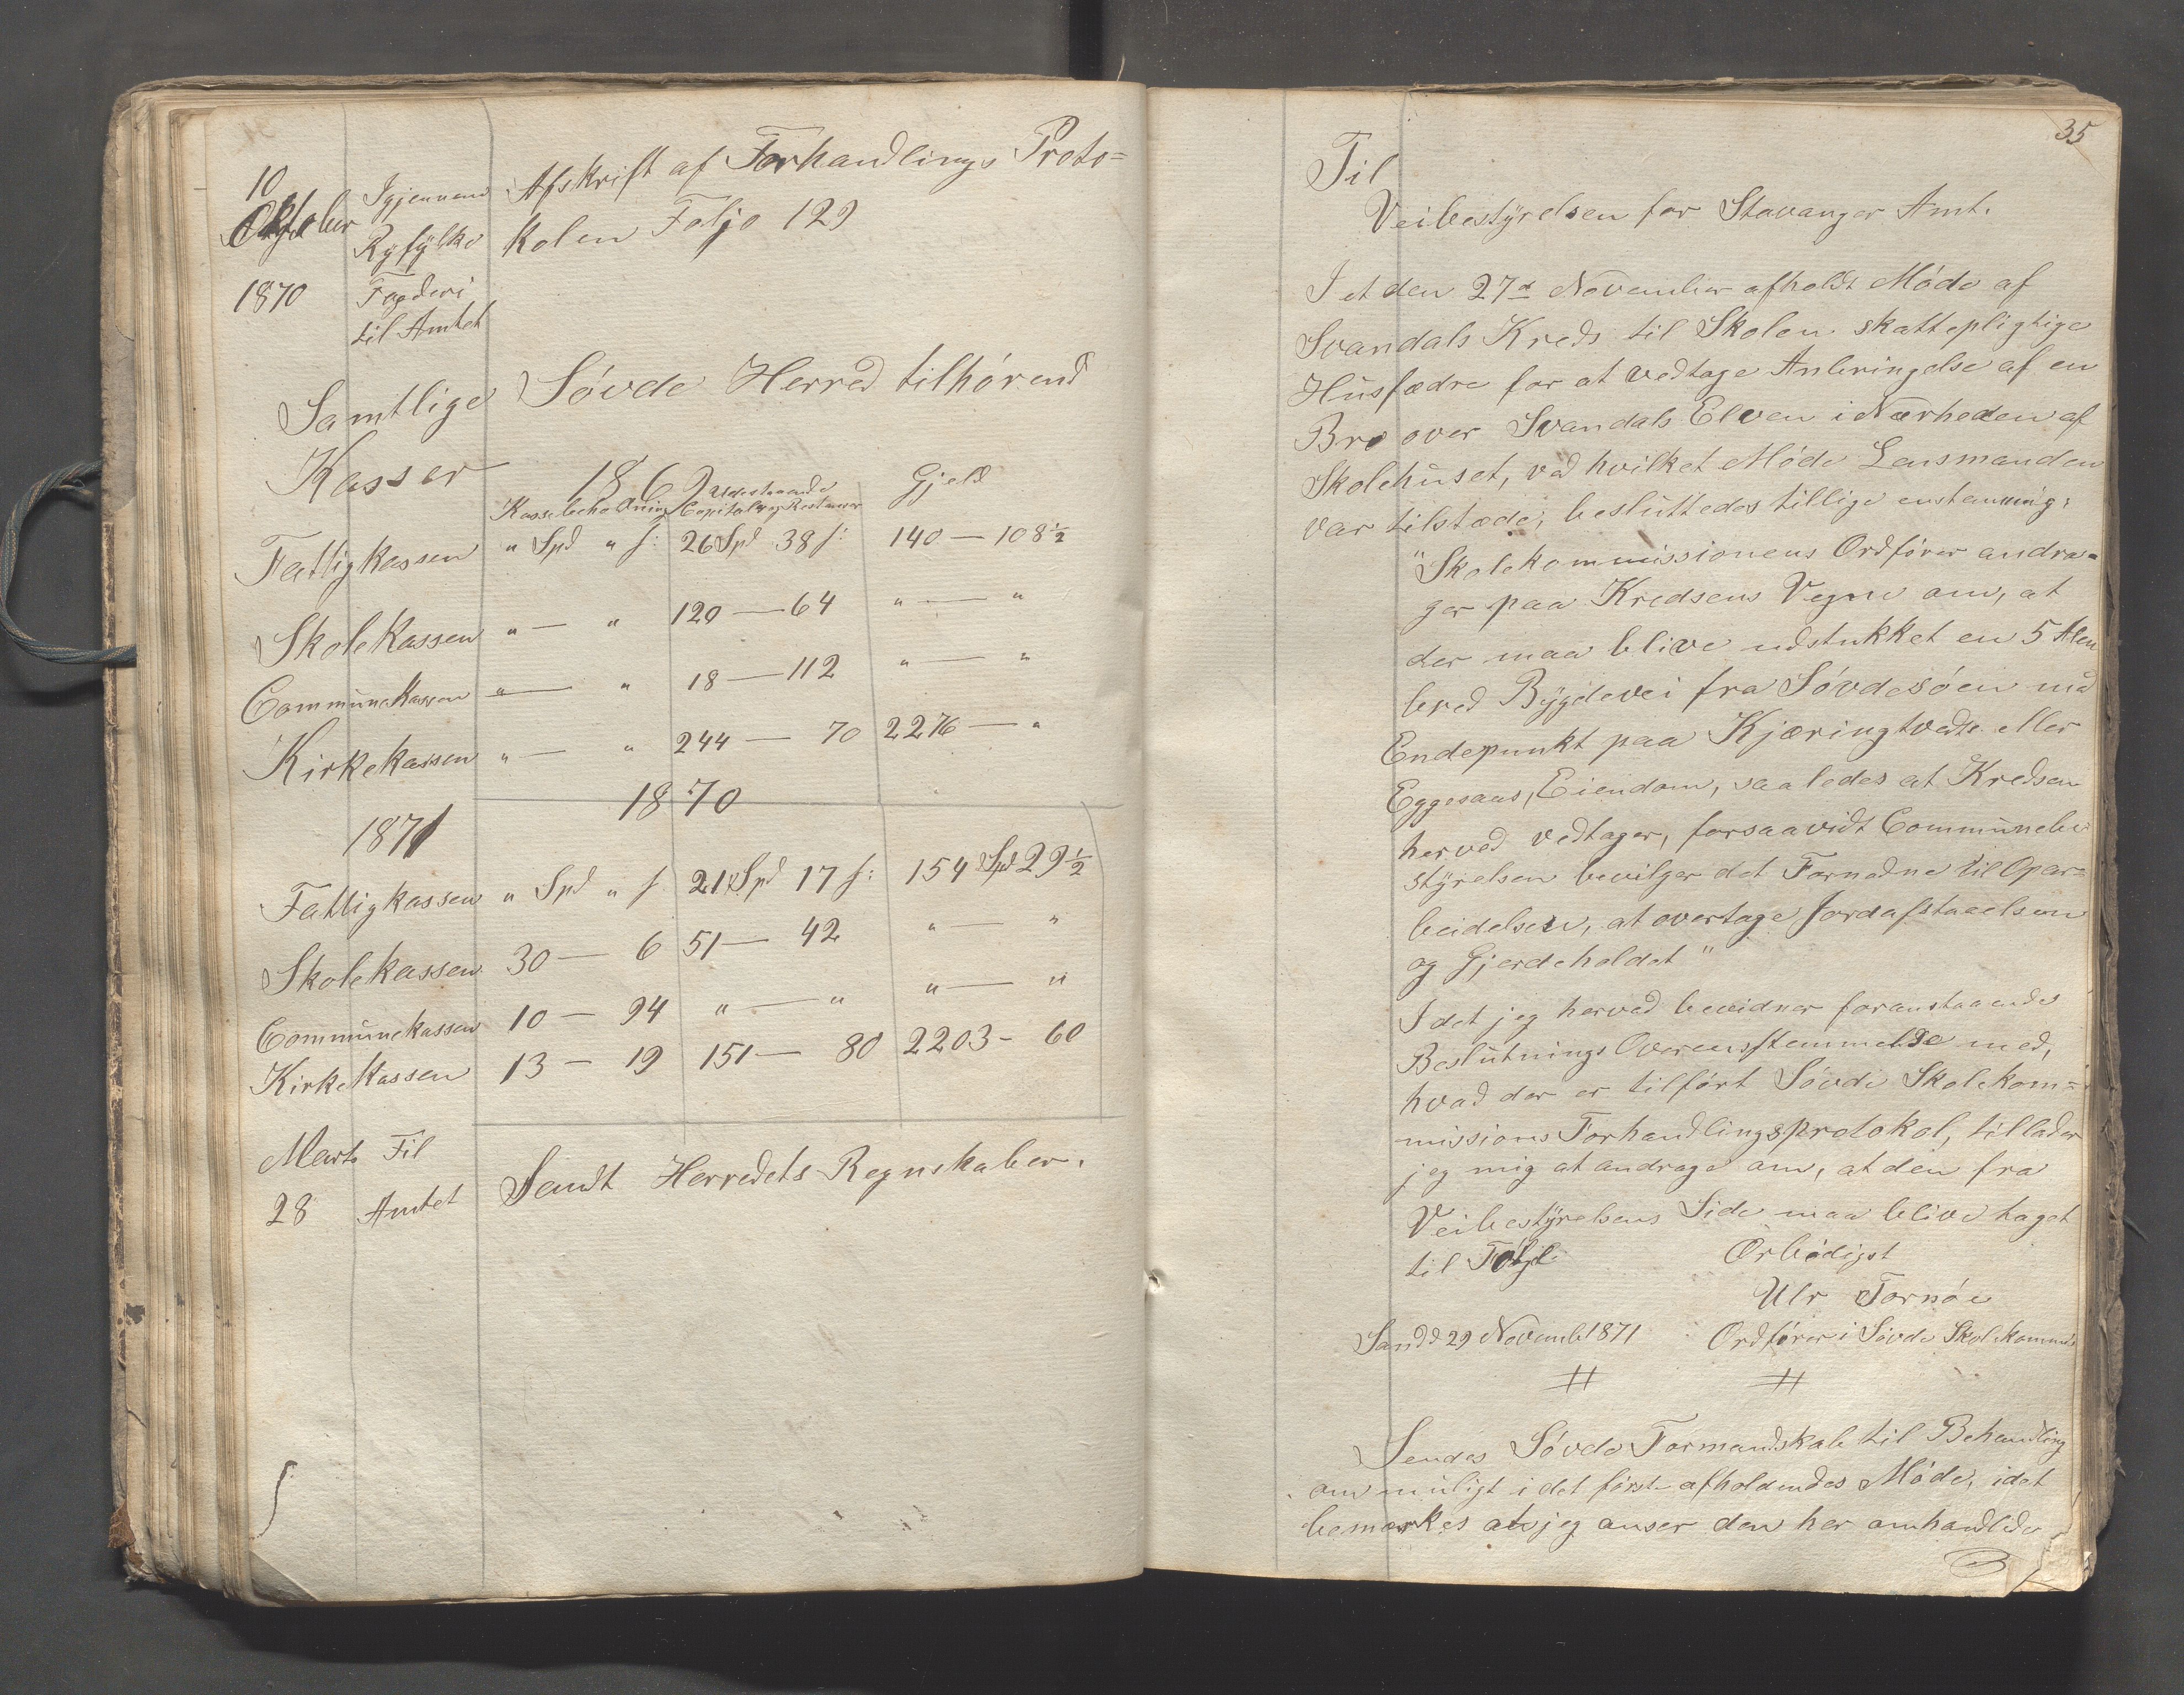 10 Igjennem Afskrift af Forhandlings Proto=
Oktober Ryfylke kolen Foljo 129
1870 Fogderi
til Amtet
Samtlige Søvde Herred tilhørend
Kasser 1869
Kassebeholdning Udestaaende Capitaler og Restancer Gjeld
Fattigkassen " Spd " s: 26 Spd 38 s: 140 — 108½
Skolekassen " — " 120 — 64 " — "
Communekassen " — " 18 — 112 " — "
Kirkekassen " — " 244 — 70 2276 — "
1871 1870
Fattigkassen " Spd " s 21 Spd 17 s: 154 Spd 29½
Skolekassen 30 — 6 51 — 42 " — "
Communekassen 10 — 94 " — " " — "
Kirkekassen 13 — 19 151 — 80 2203 - 60
Marts Til
28 Amtet Sendt Herredets Regnskaber.
35
Til
Veibestyrelsen for Stavanger Amt.
I et den 27d November afholdt Møde af
Svandals Kreds til Skolen skattepligtige
Husfædre for at vedtage Anbringelse af en
Bro over Svandals Elven i Nærheden af
Skolehuset, ved hvilket Møde Lensmanden
var tilstæde, besluttedes tillige enstemmig:
"Skolekommissionens Ordfører andra=
ger paa Kredsens Vegne om, at
der maa blive udstukket en 5 Alen
bred Bygdevei fra Søvdesøen med
Endepunkt paa Kjæringtvedts eller
Eggesaas, Eiendom, saaledes at Kredsen
herved vedtager, forsaavidt Communebe
styrelsen bevilger det Fornødne til Opar=
beidelsen, at overtage Jordafstaaelsen
og Gjerdeholdet"
Idet jeg herved bevidner foranstaaendes
Beslutnings Overensstemmelse med,
hvad der er tilført Søvde Skolekom=
missions Forhandlingsprotokol, tillader
jeg mig at andrage om, at den fra
Veibestyrelsens Side maa blive taget
til Følge Ærbødigst
Ulr Tornøe
Sand d 29 Novemb 1871 Ordfører i Søvde Skolekommis
# #
Sendes Søvde Formandskab til Behandling
om muligt i det først afholdendes Møde, idet
bemærkes at jeg anser den her omhandlede